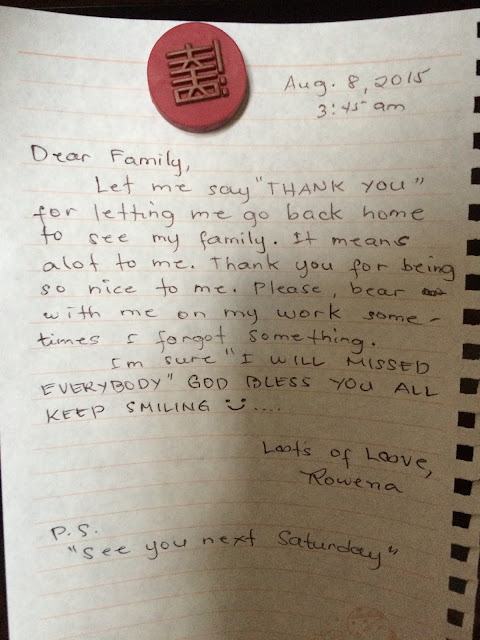 囍
Aug. 8, 2015
3:45 am
Dear Family,
Let me say "THANK YOU"
for letting me go back home
to see my family. It means
alot to me. Thank you for being
so nice to me. Please, bear
with me on my work some-
times I forgot something.
Im sure "I WILL MISSED
EVERYBODY" GOD BLESS YOU ALL
KEEP SMILING ☺....
Loots of Loove,
Rowena
P.S.
"See you next Saturday"